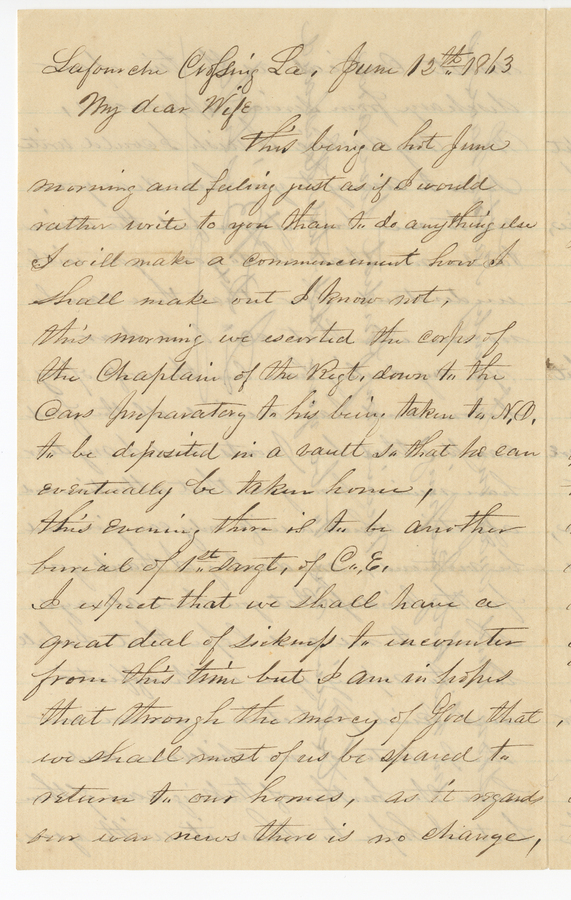 Lafourche Crossing La, June 12th 1863
My dear Wife
this being a hot June
morning and feeling just as if I would
rather write to you than to do anything else
I will make a commencement how I
shall make out I know not,
this morning we escorted the corps of
the Chaplain of the Regt, down to the
Cars preparatory to his being taken to N.O.
to be deposited in a vault so that he can
eventually be taken home,
this evening there is to be another
burial of 1st Sargt, of Co, E.
I expect that we shall have a
great deal of sickness to encounter
from this time but I am in hopes
that through the mercy of God that
we shall most of us be spared to
return to our homes, as it regards
our war news there is no change,